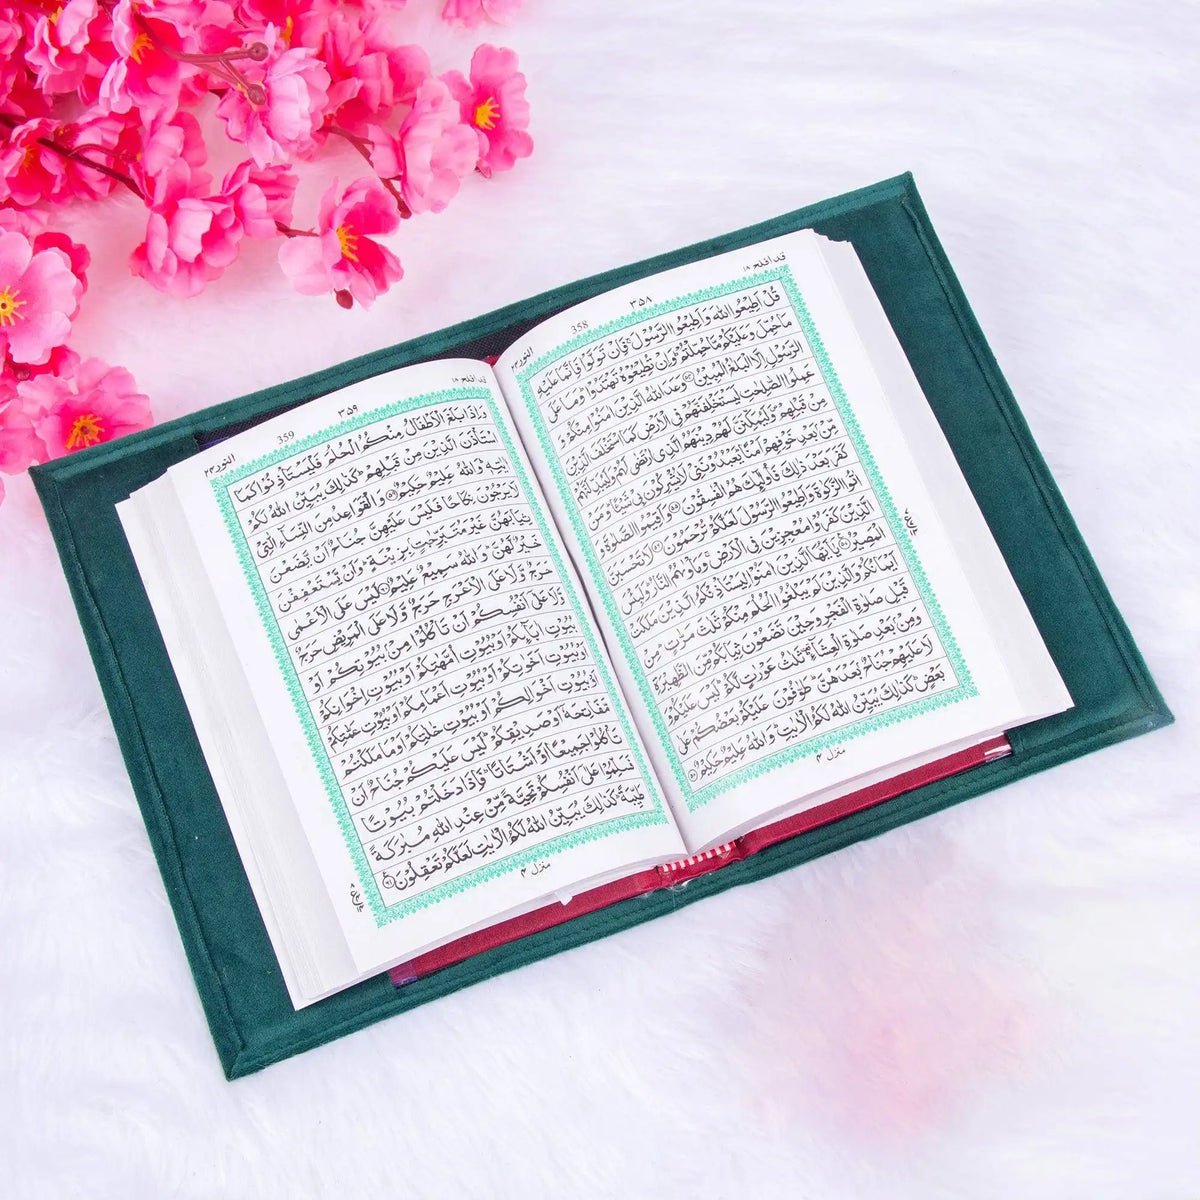 قد افلح ۱۸
۳۵۸
358
النور ۲۴
قُلْ اَطِيْعُوا اللّٰهَ وَ اَطِيْعُوا الرَّسُوْلَ ۚ فَاِنْ تَوَلَّوْا فَاِنَّمَا عَلَيْهِ
مَا حُمِّلَ وَ عَلَيْكُمْ مَّا حُمِّلْتُمْ ؕ وَ اِنْ تُطِيْعُوْهُ تَهْتَدُوْا ؕ وَ مَا عَلَى
الرَّسُوْلِ اِلَّا الْبَلٰغُ الْمُبِيْنُ ۵۴ وَعَدَ اللّٰهُ الَّذِيْنَ اٰمَنُوْا مِنْكُمْ وَ
عَمِلُوا الصّٰلِحٰتِ لَيَسْتَخْلِفَنَّهُمْ فِي الْاَرْضِ كَمَا اسْتَخْلَفَ الَّذِيْنَ
مِنْ قَبْلِهِمْ ۪ وَ لَيُمَكِّنَنَّ لَهُمْ دِيْنَهُمُ الَّذِي ارْتَضٰى لَهُمْ وَ لَيُبَدِّلَنَّهُمْ
مِّنْۢ بَعْدِ خَوْفِهِمْ اَمْنًا ؕ يَعْبُدُوْنَنِيْ لَا يُشْرِكُوْنَ بِيْ شَيْـًٔا ؕ وَ مَنْ
كَفَرَ بَعْدَ ذٰلِكَ فَاُولٰٓئِكَ هُمُ الْفٰسِقُوْنَ ۵۵ وَ اَقِيْمُوا الصَّلٰوةَ وَ
اٰتُوا الزَّكٰوةَ وَ اَطِيْعُوا الرَّسُوْلَ لَعَلَّكُمْ تُرْحَمُوْنَ ۵۶ لَا تَحْسَبَنَّ
الَّذِيْنَ كَفَرُوْا مُعْجِزِيْنَ فِي الْاَرْضِ ۚ وَ مَاْوٰىهُمُ النَّارُ ؕ وَ لَبِئْسَ
الْمَصِيْرُ ۵۷ يٰۤاَيُّهَا الَّذِيْنَ اٰمَنُوْا لِيَسْتَاْذِنْكُمُ الَّذِيْنَ مَلَكَتْ
اَيْمَانُكُمْ وَ الَّذِيْنَ لَمْ يَبْلُغُوا الْحُلُمَ مِنْكُمْ ثَلٰثَ مَرّٰتٍ ؕ مِنْ
قَبْلِ صَلٰوةِ الْفَجْرِ وَ حِيْنَ تَضَعُوْنَ ثِيَابَكُمْ مِّنَ الظَّهِيْرَةِ
وَ مِنْۢ بَعْدِ صَلٰوةِ الْعِشَآءِ ؕ ثَلٰثُ عَوْرٰتٍ لَّكُمْ ؕ لَيْسَ عَلَيْكُمْ وَ
لَا عَلَيْهِمْ جُنَاحٌۢ بَعْدَهُنَّ ؕ طَوّٰفُوْنَ عَلَيْكُمْ بَعْضُكُمْ عَلٰى
بَعْضٍ ؕ كَذٰلِكَ يُبَيِّنُ اللّٰهُ لَكُمُ الْاٰيٰتِ ؕ وَ اللّٰهُ عَلِيْمٌ حَكِيْمٌ ۵۸
منزل ۴
قد افلح ۱۸
۳۵۹
359
النور ۲۴
وَ اِذَا بَلَغَ الْاَطْفَالُ مِنْكُمُ الْحُلُمَ فَلْيَسْتَاْذِنُوْا كَمَا
اسْتَاْذَنَ الَّذِيْنَ مِنْ قَبْلِهِمْ ؕ كَذٰلِكَ يُبَيِّنُ اللّٰهُ لَكُمْ
اٰيٰتِهٖ ؕ وَ اللّٰهُ عَلِيْمٌ حَكِيْمٌ ۵۹ وَ الْقَوَاعِدُ مِنَ النِّسَآءِ الّٰتِيْ
لَا يَرْجُوْنَ نِكَاحًا فَلَيْسَ عَلَيْهِنَّ جُنَاحٌ اَنْ يَّضَعْنَ
ثِيَابَهُنَّ غَيْرَ مُتَبَرِّجٰتٍۭ بِزِيْنَةٍ ؕ وَ اَنْ يَّسْتَعْفِفْنَ
خَيْرٌ لَّهُنَّ ؕ وَ اللّٰهُ سَمِيْعٌ عَلِيْمٌ ۶۰ لَيْسَ عَلَى الْاَعْمٰى
حَرَجٌ وَّ لَا عَلَى الْاَعْرَجِ حَرَجٌ وَّ لَا عَلَى الْمَرِيْضِ حَرَجٌ
وَّ لَا عَلٰۤى اَنْفُسِكُمْ اَنْ تَاْكُلُوْا مِنْۢ بُيُوْتِكُمْ اَوْ
بُيُوْتِ اٰبَآئِكُمْ اَوْ بُيُوْتِ اُمَّهٰتِكُمْ اَوْ بُيُوْتِ اِخْوَانِكُمْ
اَوْ بُيُوْتِ اَخَوٰتِكُمْ اَوْ بُيُوْتِ اَعْمَامِكُمْ اَوْ بُيُوْتِ عَمّٰتِكُمْ
اَوْ بُيُوْتِ اَخْوَالِكُمْ اَوْ بُيُوْتِ خٰلٰتِكُمْ اَوْ مَا مَلَكْتُمْ
مَّفَاتِحَهٗۤ اَوْ صَدِيْقِكُمْ ؕ لَيْسَ عَلَيْكُمْ جُنَاحٌ اَنْ
تَاْكُلُوْا جَمِيْعًا اَوْ اَشْتَاتًا ؕ فَاِذَا دَخَلْتُمْ بُيُوْتًا
فَسَلِّمُوْا عَلٰۤى اَنْفُسِكُمْ تَحِيَّةً مِّنْ عِنْدِ اللّٰهِ مُبٰرَكَةً
طَيِّبَةً ؕ كَذٰلِكَ يُبَيِّنُ اللّٰهُ لَكُمُ الْاٰيٰتِ لَعَلَّكُمْ تَعْقِلُوْنَ ۶۱
منزل ۴